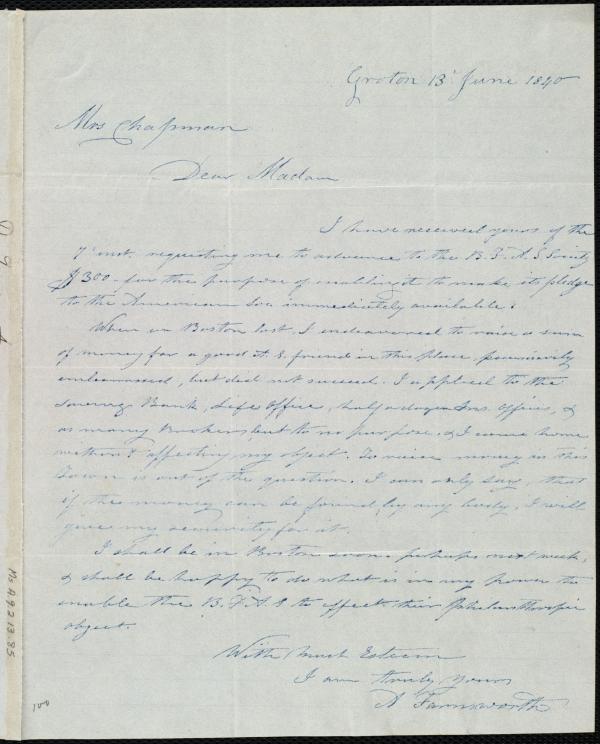 Groton 13' June 1840
Mrs Chapman
Dear Madam
I have received yours of the
7' inst. requesting me to advance to the B. F. A. S. Society
$300 for the purpose of enabling it to make its pledge
to the American Soc. immediately available.
When in Boston last, I endeavored to raise a sum
of money for a good A. S. friend in this place, pecuniarily
embarrassed, but did not succeed. I applied to the
Savings Bank, Life Office, half a dozen Ins. Offices, &
as many Brokers but to no purpose, & I came home
without affecting my object. To raise money in this
Town is out of the question. I can only say, that
if the money can be found by any body, I will
give my security for it.
I shall be in Boston soon. perhaps next week,
& shall be happy to do what is in my power to
enable the B. F. A. S to effect their philanthropic
object.
With much Esteem
I am truly Yours
A Farnsworth
Ms A 9 2 13.85
100